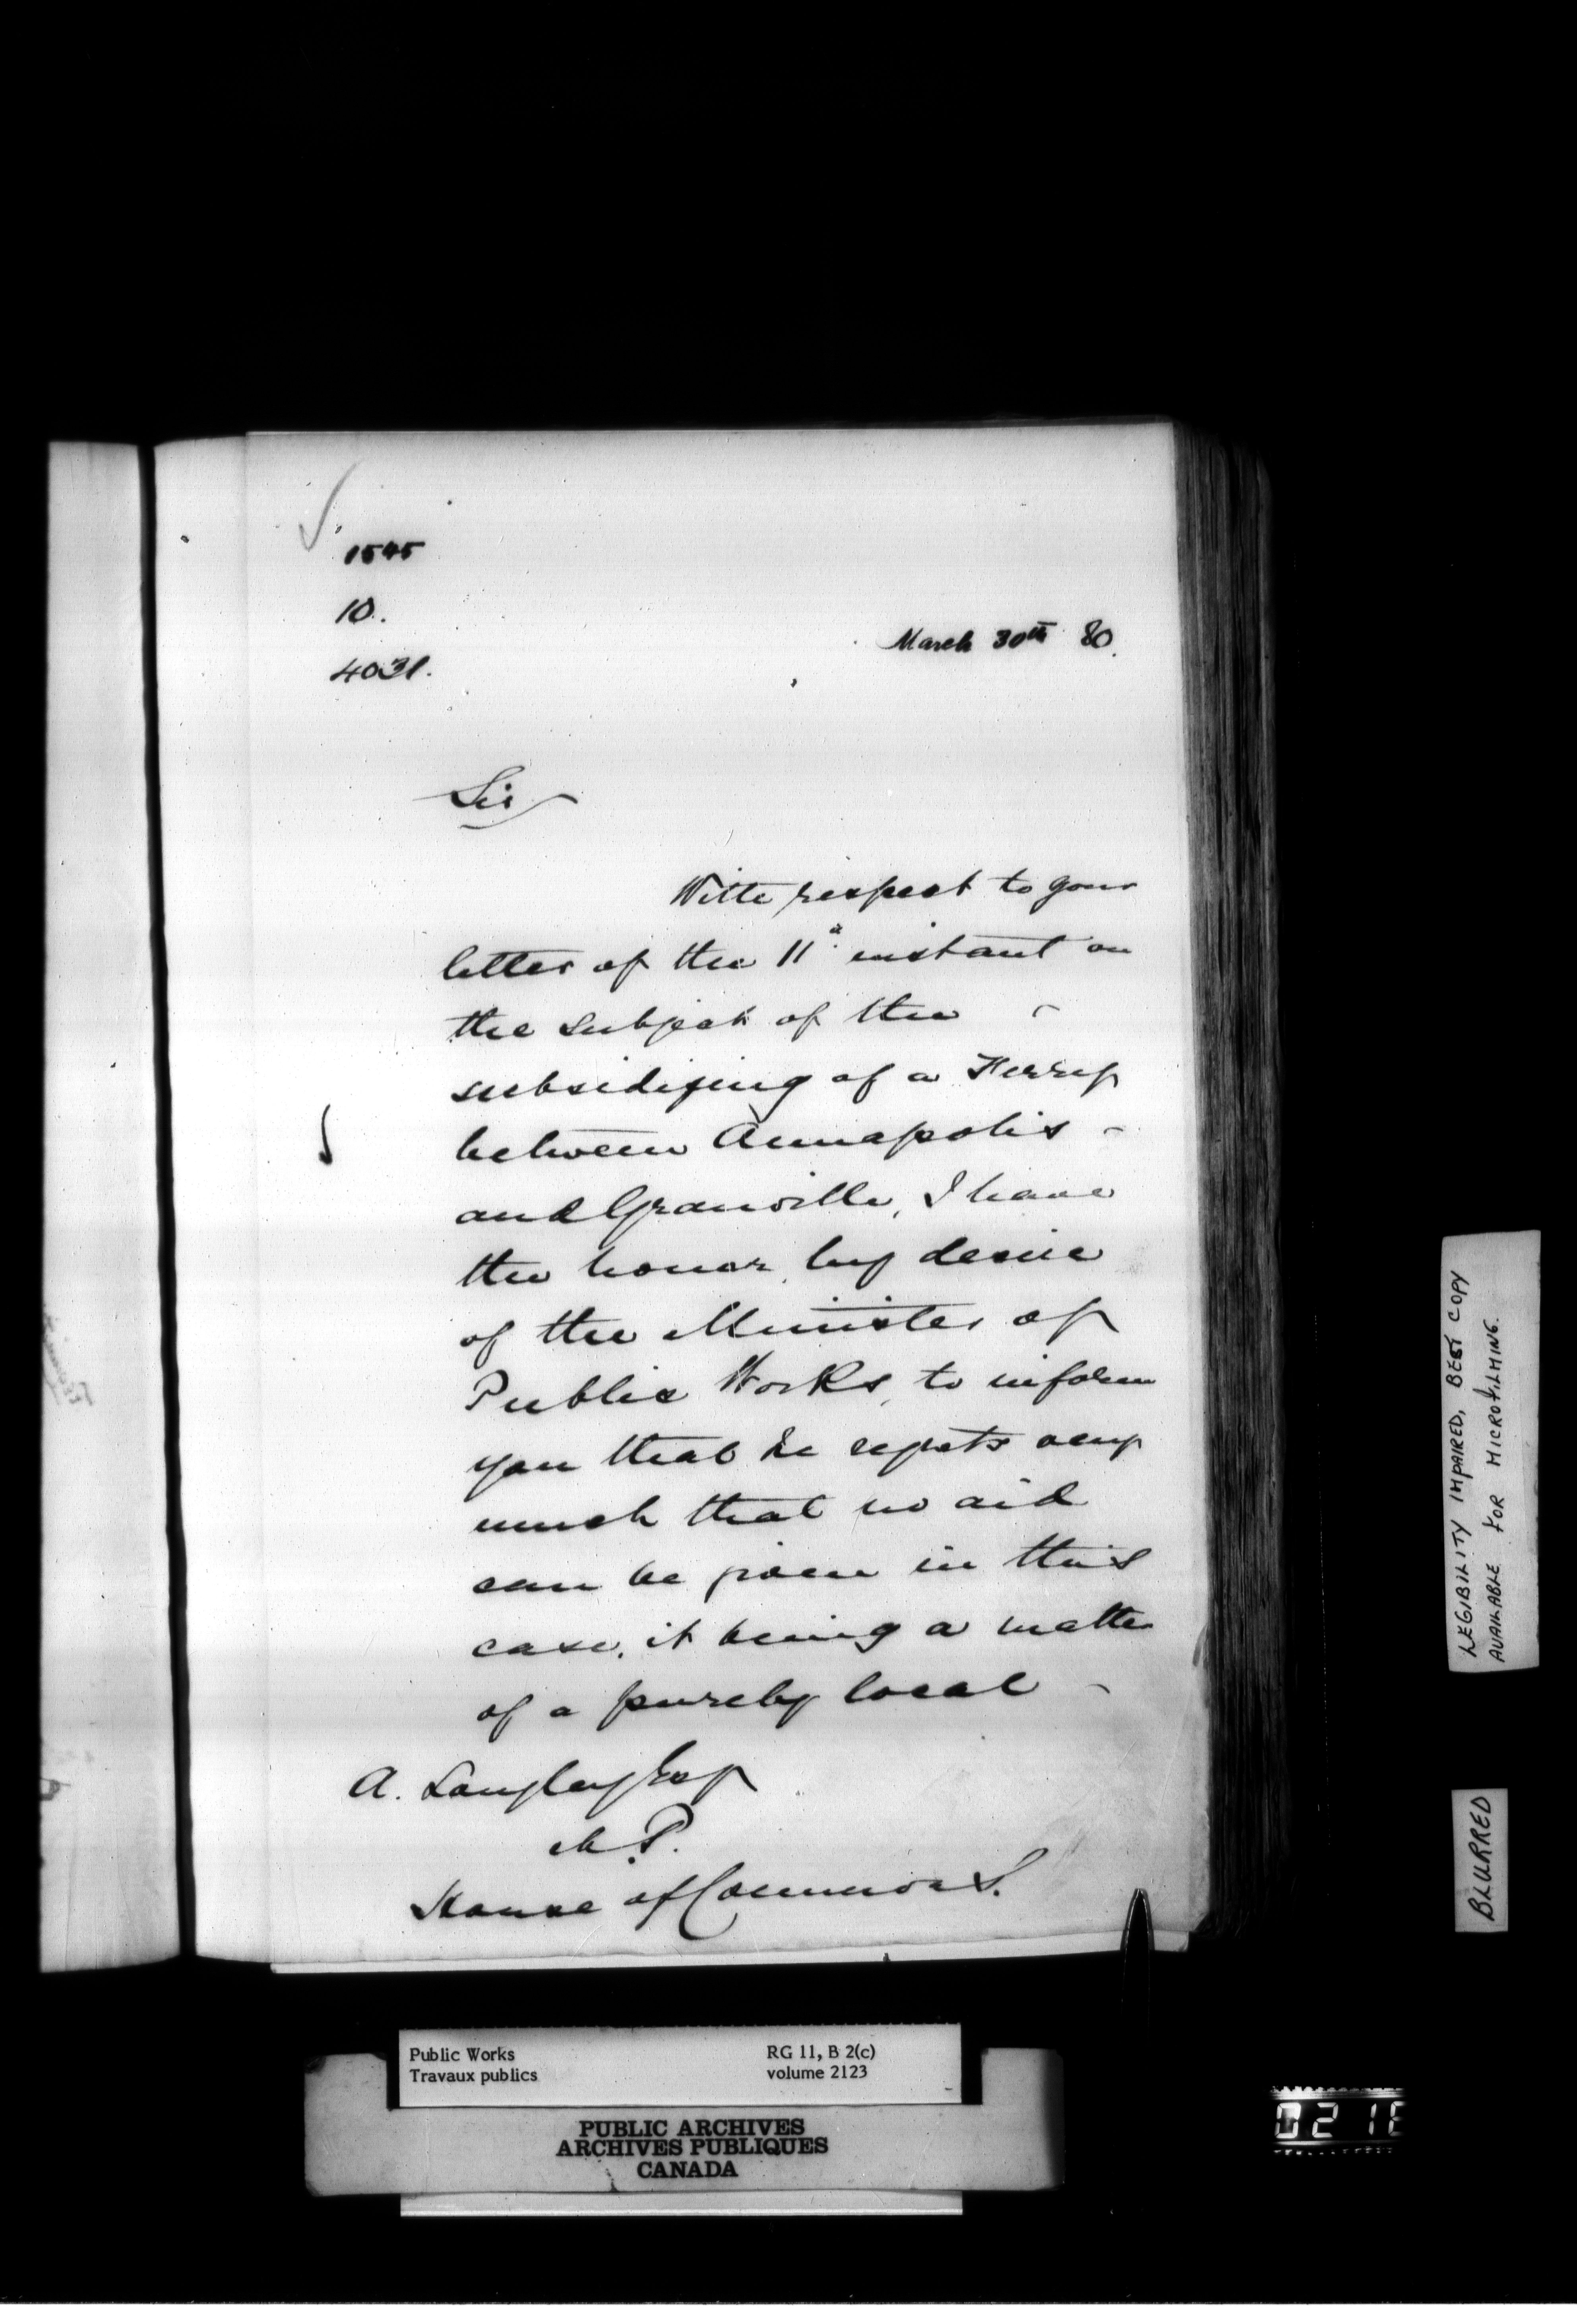 1545
10.
4031.
March 30th 80.
Sir
With respect to your
letter of the 11th instant on
the subject of the
subsidizing of a Ferry
between Annapolis
and Granville, I have
the honor, by desire
of the Minister of
Public Works, to inform
you that he regrets very
much that no aid
can be given in this
case, it being a matter
of a purely local
A. Longley Esq
M.P.
House of Commons.
LEGIBILITY IMPAIRED, BEST COPY
AVAILABLE FOR MICROFILMING.
BLURRED
Public Works RG 11, B 2(c)
Travaux publics volume 2123
PUBLIC ARCHIVES
ARCHIVES PUBLIQUES
CANADA